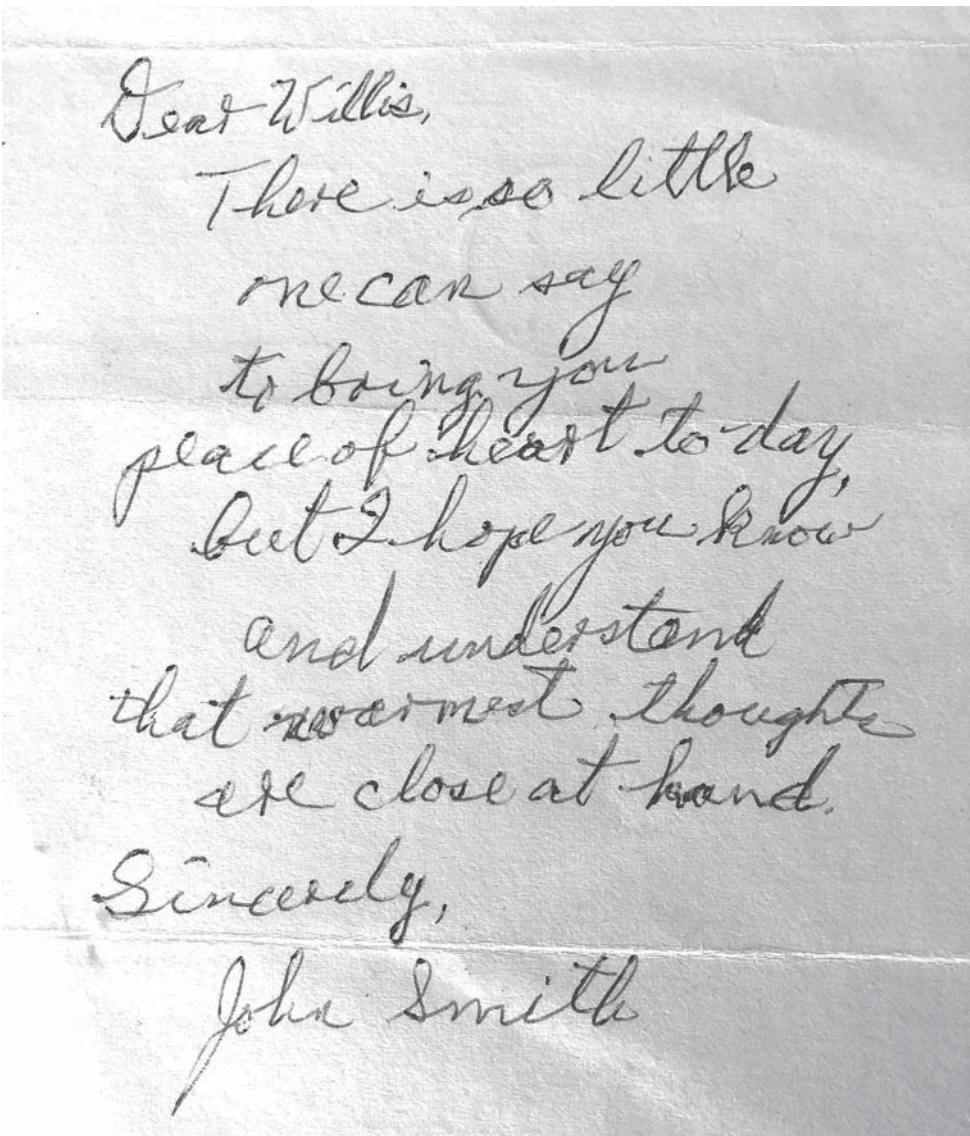 Dear Willis,
There is so little
one can say
to bring you
peace of heart to-day,
but I hope you know
and understand
that warmest thoughts
are close at hand.
Sincerely,
John Smith